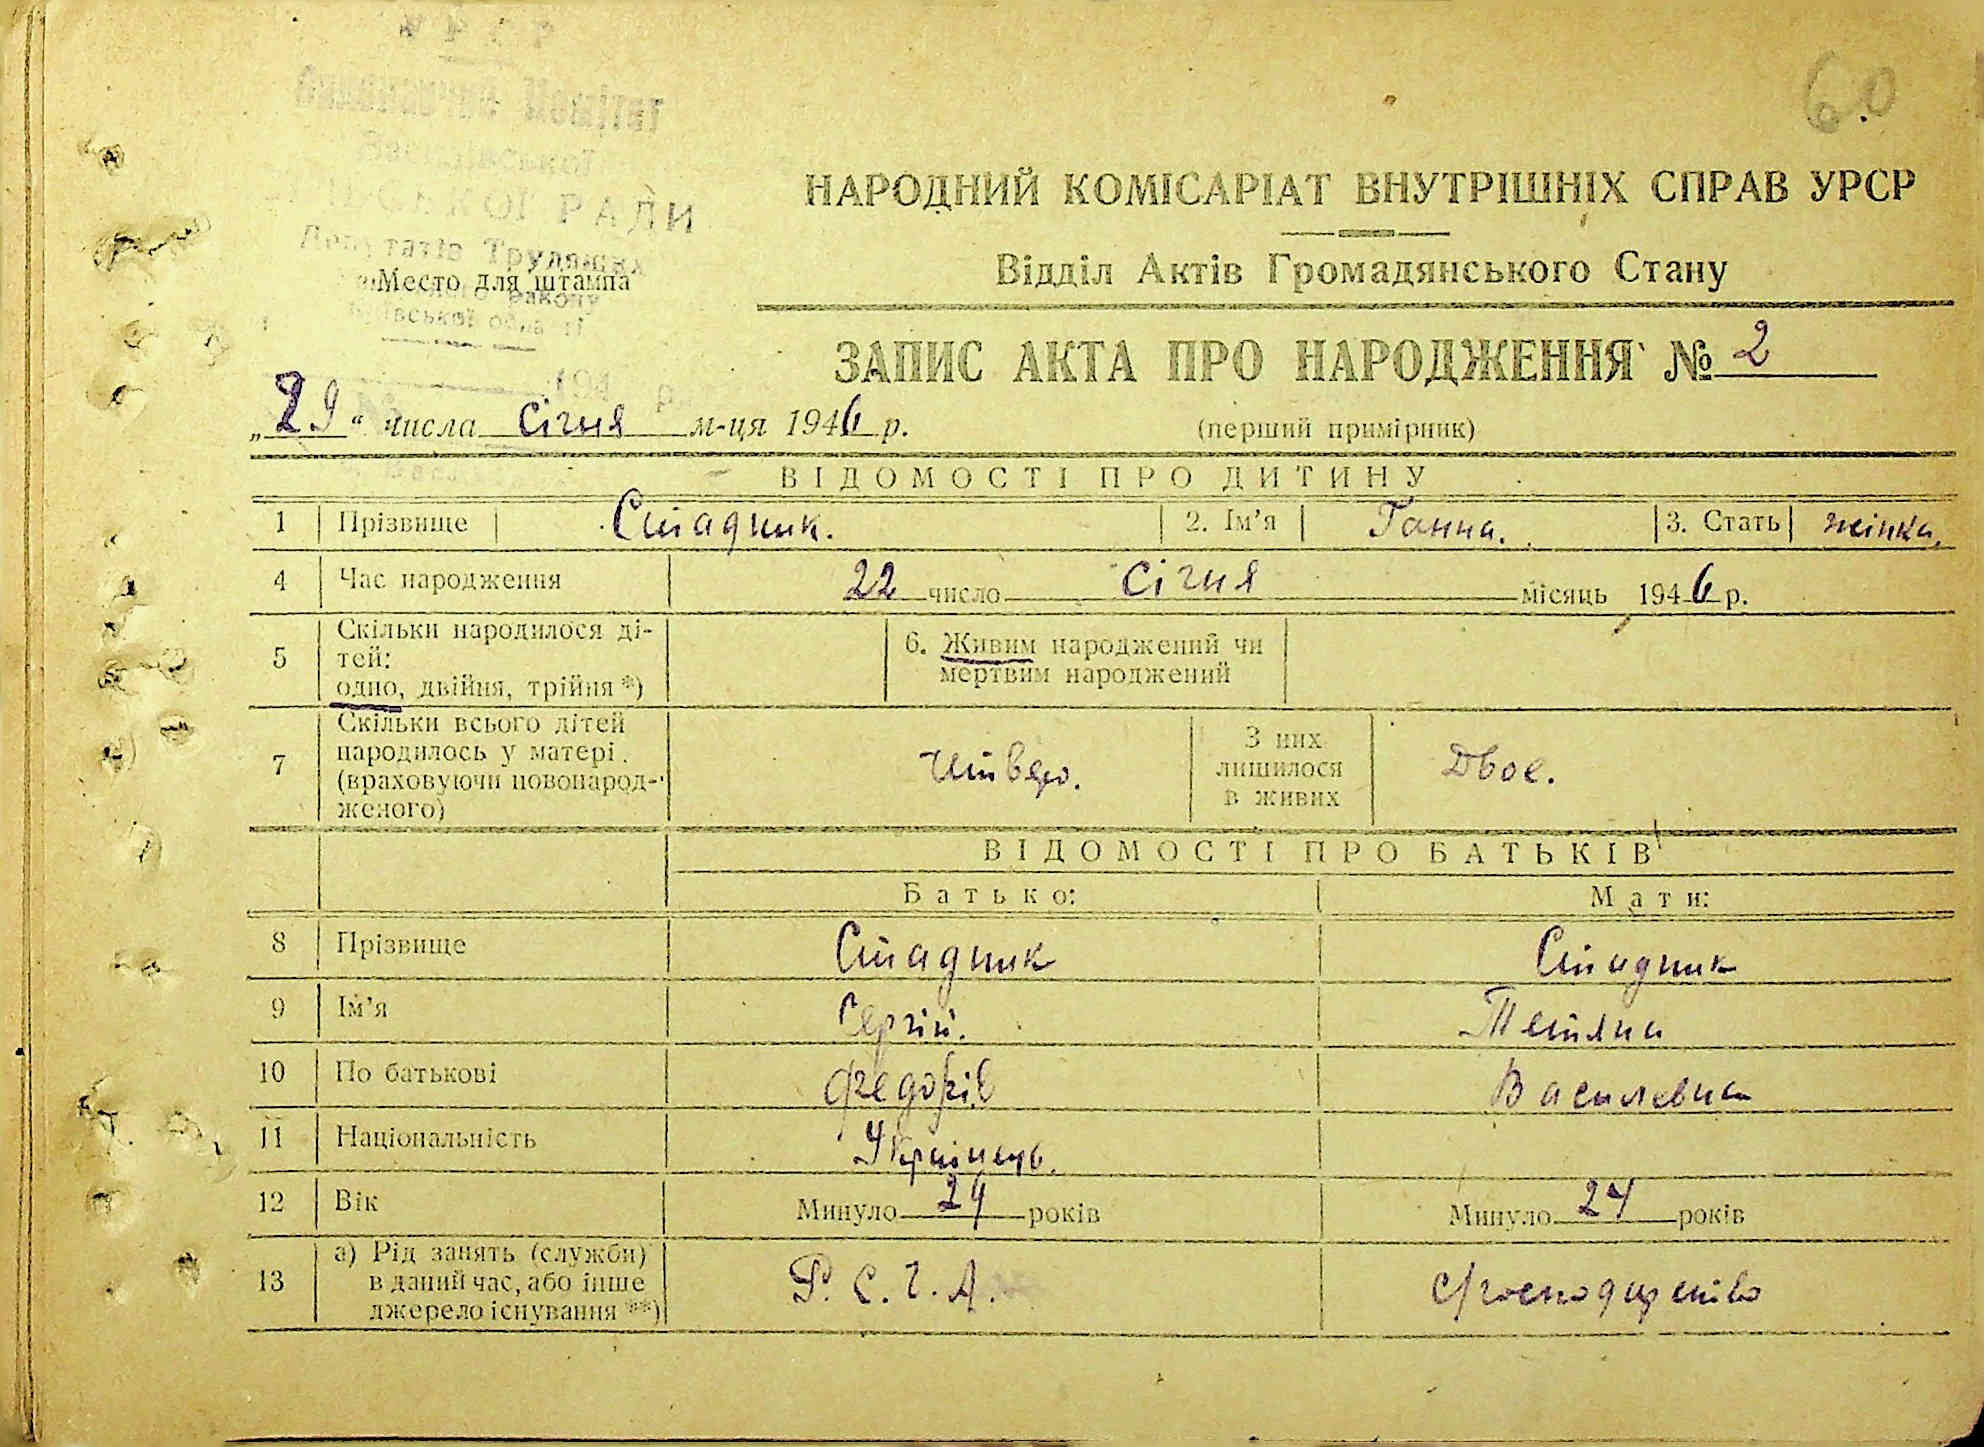 60
Виконавчий Комітет
РАДИ
Депутатів Трудящих
Место для штампа
НАРОДНИЙ КОМІСАРІАТ ВНУТРІШНІХ СПРАВ УРСР
Відділ Актів Громадянського Стану
ЗАПИС АКТА ПРО НАРОДЖЕННЯ № 2
„29“ числа січня м-ця 1946 р.
(перший примірник)
ВІДОМОСТІ ПРО ДИТИНУ
1 Прізвище Стадник. 2. Ім'я Ганна. 3. Стать жінка.
4 Час народження 22 число січня місяць 1946 р.
5 Скільки народилося ді-
тей:
одно, двійня, трійня *)
6. Живим народжений чи
мертвим народжений
7 Скільки всього дітей
народилось у матері.
(враховуючи новонарод-
женого)
З них
лишилося
в живих
Двое.
ВІДОМОСТІ ПРО БАТЬКІВ
Батько: Мати:
8 Прізвище Стадник Стадник
9 Ім'я Сергій. Тетяна
10 По батькові Федорів Василевна
11 Національність Українець.
12 Вік Минуло 24 років Минуло 24 років
13 а) Рід занять (служби)
в даний час, або інше
джерело існування **)
Р. С. Ч. А.